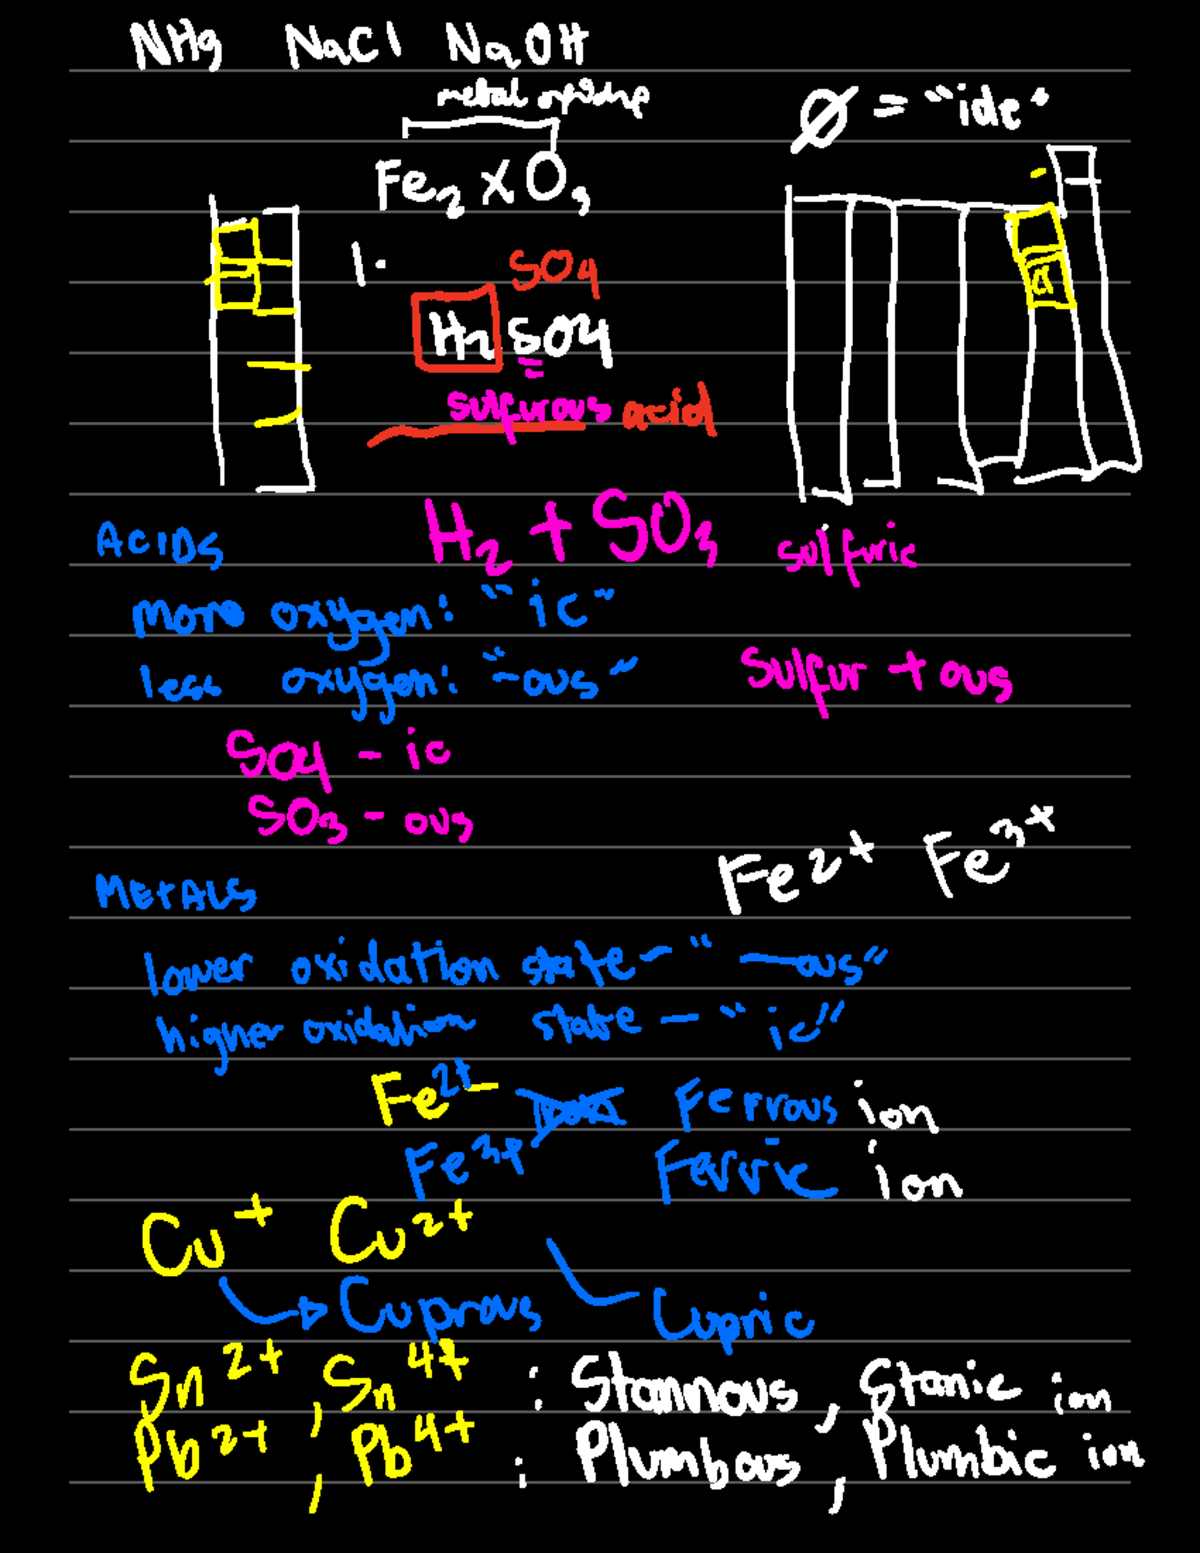 NH3 NaCl NaOH
metal oxide
Ø = "ide"
Fe2 x O3
1.
SO4
H2 SO4
sulfurous acid
H2 + SO3 sulfuric
ACIDS
more oxygen: "ic"
less oxygen: "-ous"
Sulfur + ous
SO4 - ic
SO3 - ous
Fe2+ Fe3+
METALS
lower oxidation state - " -ous"
higher oxidation state - "ic"
Fe2+ - Ferrous ion
Fe3+ Ferric ion
Cu+ Cu2+
Cuprous Cupric
Sn2+, Sn4+ : Stannous, Stanic ion
Pb2+, Pb4+ : Plumbous, Plumbic ion